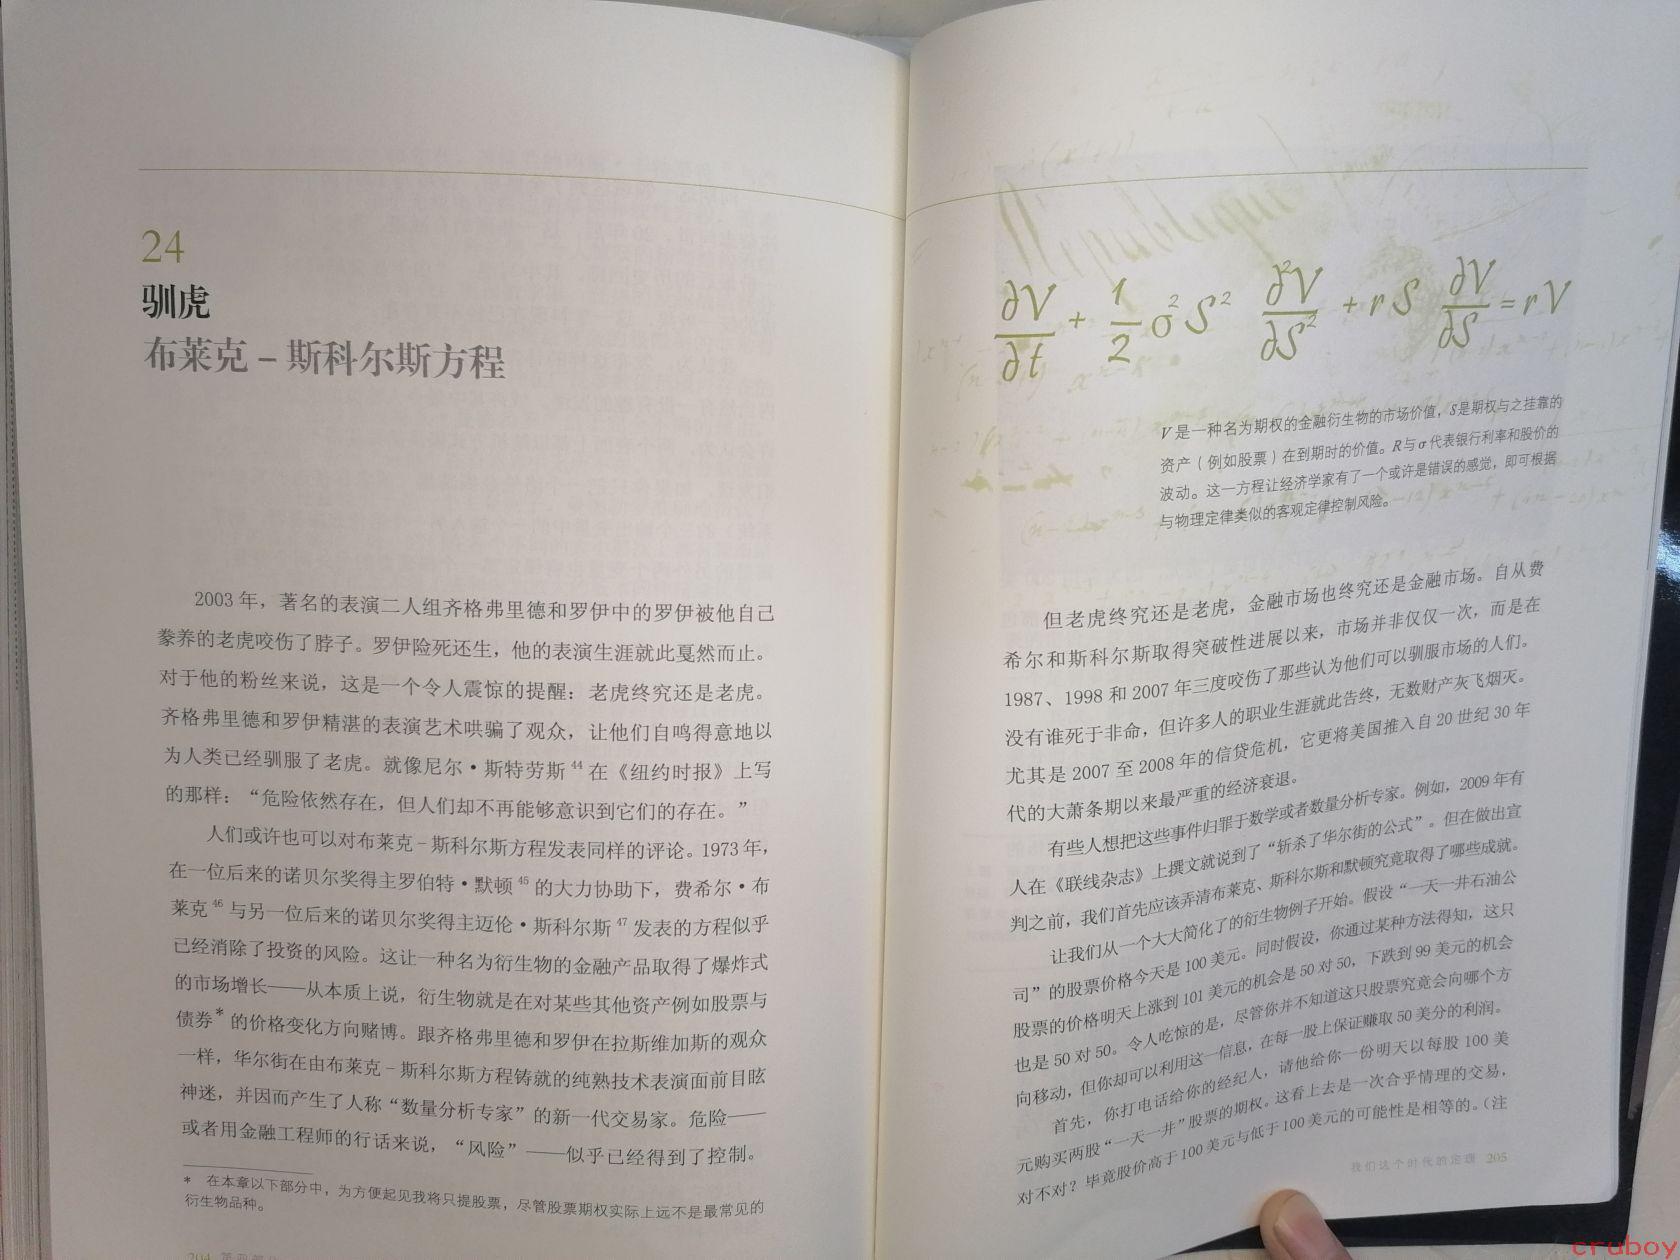 24
驯虎
布莱克－斯科尔斯方程
2003 年，著名的表演二人组齐格弗里德和罗伊中的罗伊被他自己
豢养的老虎咬伤了脖子。罗伊险死还生，他的表演生涯就此戛然而止。
对于他的粉丝来说，这是一个令人震惊的提醒：老虎终究还是老虎。
齐格弗里德和罗伊精湛的表演艺术哄骗了观众，让他们自鸣得意地以
为人类已经驯服了老虎。就像尼尔·斯特劳斯44在《纽约时报》上写
的那样：“危险依然存在，但人们却不再能够意识到它们的存在。”
人们或许也可以对布莱克－斯科尔斯方程发表同样的评论。1973 年，
在一位后来的诺贝尔奖得主罗伯特·默顿45的大力协助下，费希尔·布
莱克46与另一位后来的诺贝尔奖得主迈伦·斯科尔斯47发表的方程似乎
已经消除了投资的风险。这让一种名为衍生物的金融产品取得了爆炸式
的市场增长——从本质上说，衍生物就是在对某些其他资产例如股票与
债券*的价格变化方向赌博。跟齐格弗里德和罗伊在拉斯维加斯的观众
一样，华尔街在由布莱克－斯科尔斯方程铸就的纯熟技术表演面前目眩
神迷，并因而产生了人称“数量分析专家”的新一代交易家。危险——
或者用金融工程师的行话来说，“风险”——似乎已经得到了控制。
* 在本章以下部分中，为方便起见我将只提股票，尽管股票期权实际上远不是最常见的
衍生物品种。
204
∂V/∂t + 1/2 σ² S² ∂²V/∂S² + r S ∂V/∂S = r V
V 是一种名为期权的金融衍生物的市场价值，S是期权与之挂靠的
资产（例如股票）在到期时的价值。R与σ代表银行利率和股价的
波动。这一方程让经济学家有了一个或许是错误的感觉，即可根据
与物理定律类似的客观定律控制风险。
但老虎终究还是老虎，金融市场也终究还是金融市场。自从费
希尔和斯科尔斯取得突破性进展以来，市场并非仅仅一次，而是在
1987、1998 和 2007 年三度咬伤了那些认为他们可以驯服市场的人们。
没有谁死于非命，但许多人的职业生涯就此告终，无数财产灰飞烟灭。
尤其是 2007 至 2008 年的信贷危机，它更将美国推入自 20 世纪 30 年
代的大萧条期以来最严重的经济衰退。
有些人想把这些事件归罪于数学或者数量分析专家。例如，2009 年有
人在《联线杂志》上撰文就说到了“斩杀了华尔街的公式”。但在做出宣
判之前，我们首先应该弄清布莱克、斯科尔斯和默顿究竟取得了哪些成就。
让我们从一个大大简化了的衍生物例子开始。假设“一天一井石油公
司”的股票价格今天是 100 美元。同时假设，你通过某种方法得知，这只
股票的价格明天上涨到 101 美元的机会是 50 对 50，下跌到 99 美元的机会
也是 50 对 50。令人吃惊的是，尽管你并不知道这只股票究竟会向哪个方
向移动，但你却可以利用这一信息，在每一股上保证赚取 50 美分的利润。
首先，你打电话给你的经纪人，请他给你一份明天以每股 100 美
元购买两股“一天一井”股票的期权。这看上去是一次合乎情理的交易，
对不对？毕竟股价高于 100 美元与低于 100 美元的可能性是相等的。（注
我们这个时代的定理 205
cruboy